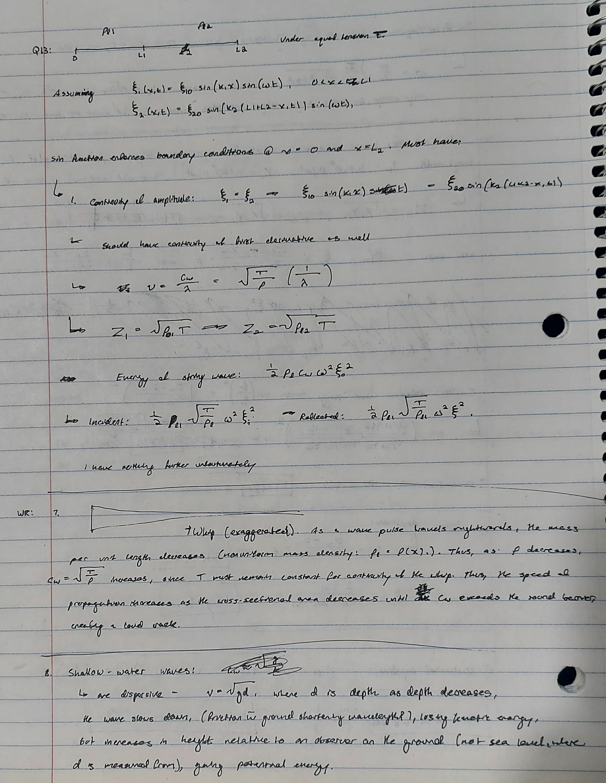 ρℓ1 ρℓ2
Q13: 0 L1 L2 under equal tension T.
Assuming ξ1(x,t) = ξ10 sin(k1x) sin(ωt), 0<x<L1
ξ2(x,t) = ξ20 sin(k2(L1+L2-x,t)) sin(ωt),
sin function enforces boundary conditions @ x=0 and x=L2. Must have:
↳ 1. Continuity of amplitude: ξ1 = ξ2 → ξ10 sin(k1x) t) = ξ20 sin(k2(L1+L2-x,t))
↳ Should have continuity of first derivative as well
↳ ν = cω/λ = √(T/ρ) (1/λ)
↳ Z1 = √(ρℓ1 T) ⇒ Z2 = √(ρℓ2 T)
Energy of string wave: 1/2 ρℓ cω ω² ξ0²
↳ Incident: 1/2 ρℓ1 √(T/ρℓ) ω² ξ² → Reflected: 1/2 ρℓ1 √(T/ρℓ1) ω² ξ².
I have nothing further unfortunately
WR: 7.
↑ Whip (exaggerated). As a wave pulse travels rightwards, the mass
per unit length decreases (nonuniform mass density: ρℓ = ρ(x).). Thus, as ρ decreases,
cω = √(T/ρ) increases, since T must remain constant for continuity of the whip. Thus, the speed of
propagation increases as the cross-sectional area decreases until cω exceeds the sound barrier,
creating a loud crack.
8. Shallow-water waves:
↳ are dispersive - v = √gd, where d is depth as depth decreases,
the wave slows down, (friction w̄ ground shortening wavelength?), losing kinetic energy,
but increases in height relative to an observer on the ground (not sea level, where
d is measured from), gaining potential energy.